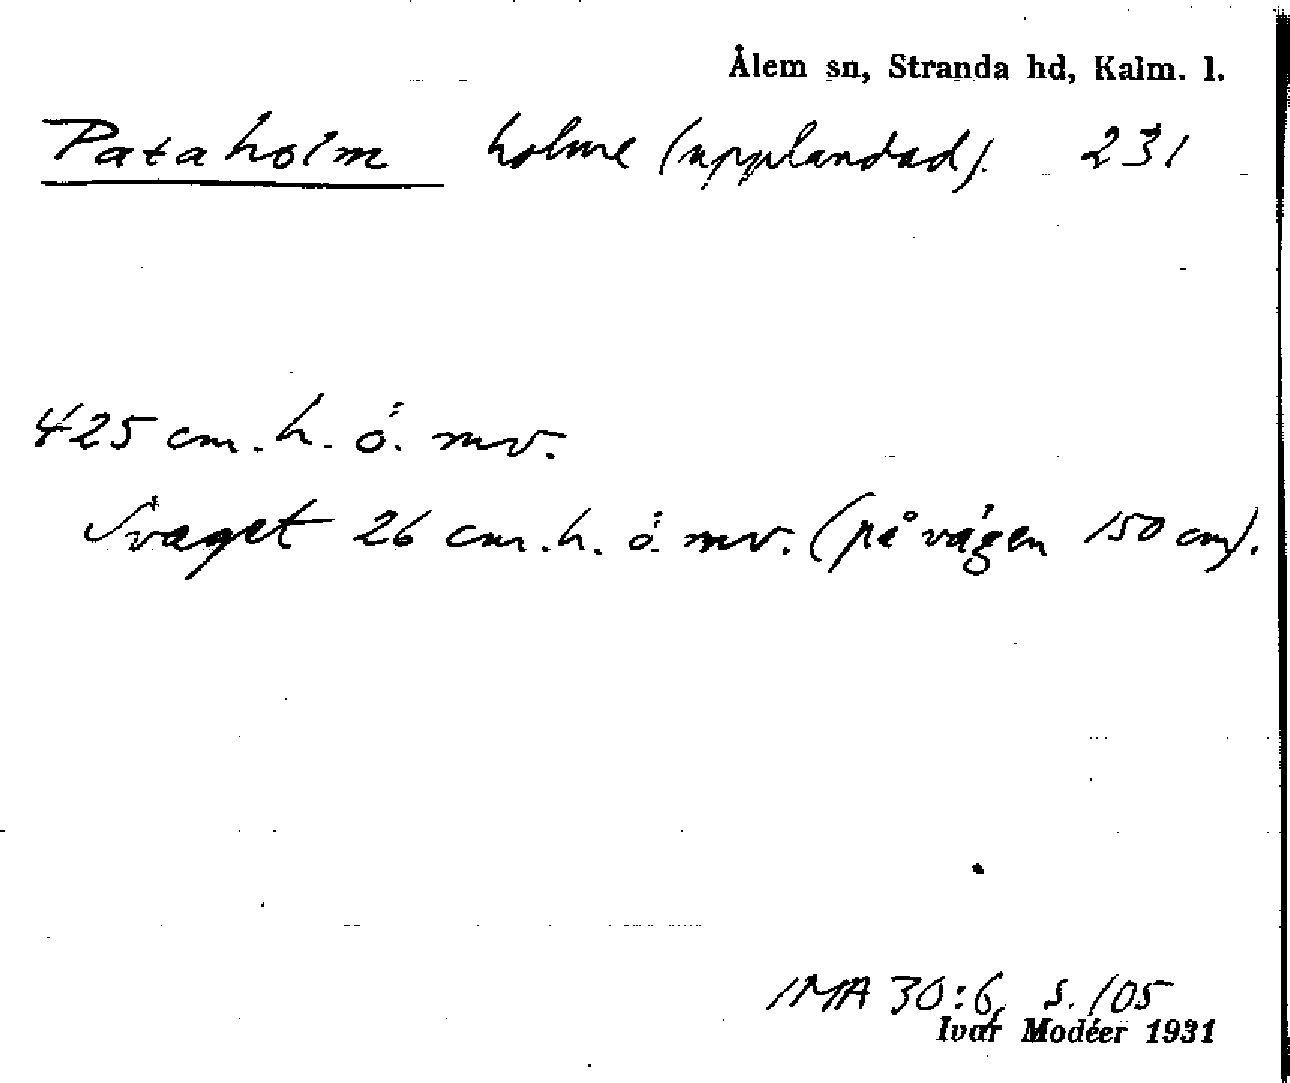 Ålem sn, Stranda hd, Kalm. l.
Pataholm holme (upplandad). 231
425 cm. h. ö. mv.
Svaget 26 cm. h. ö. mv. (på vägen 150 cm).
IMA 30:6, s. 105
Ivar Modéer 1931